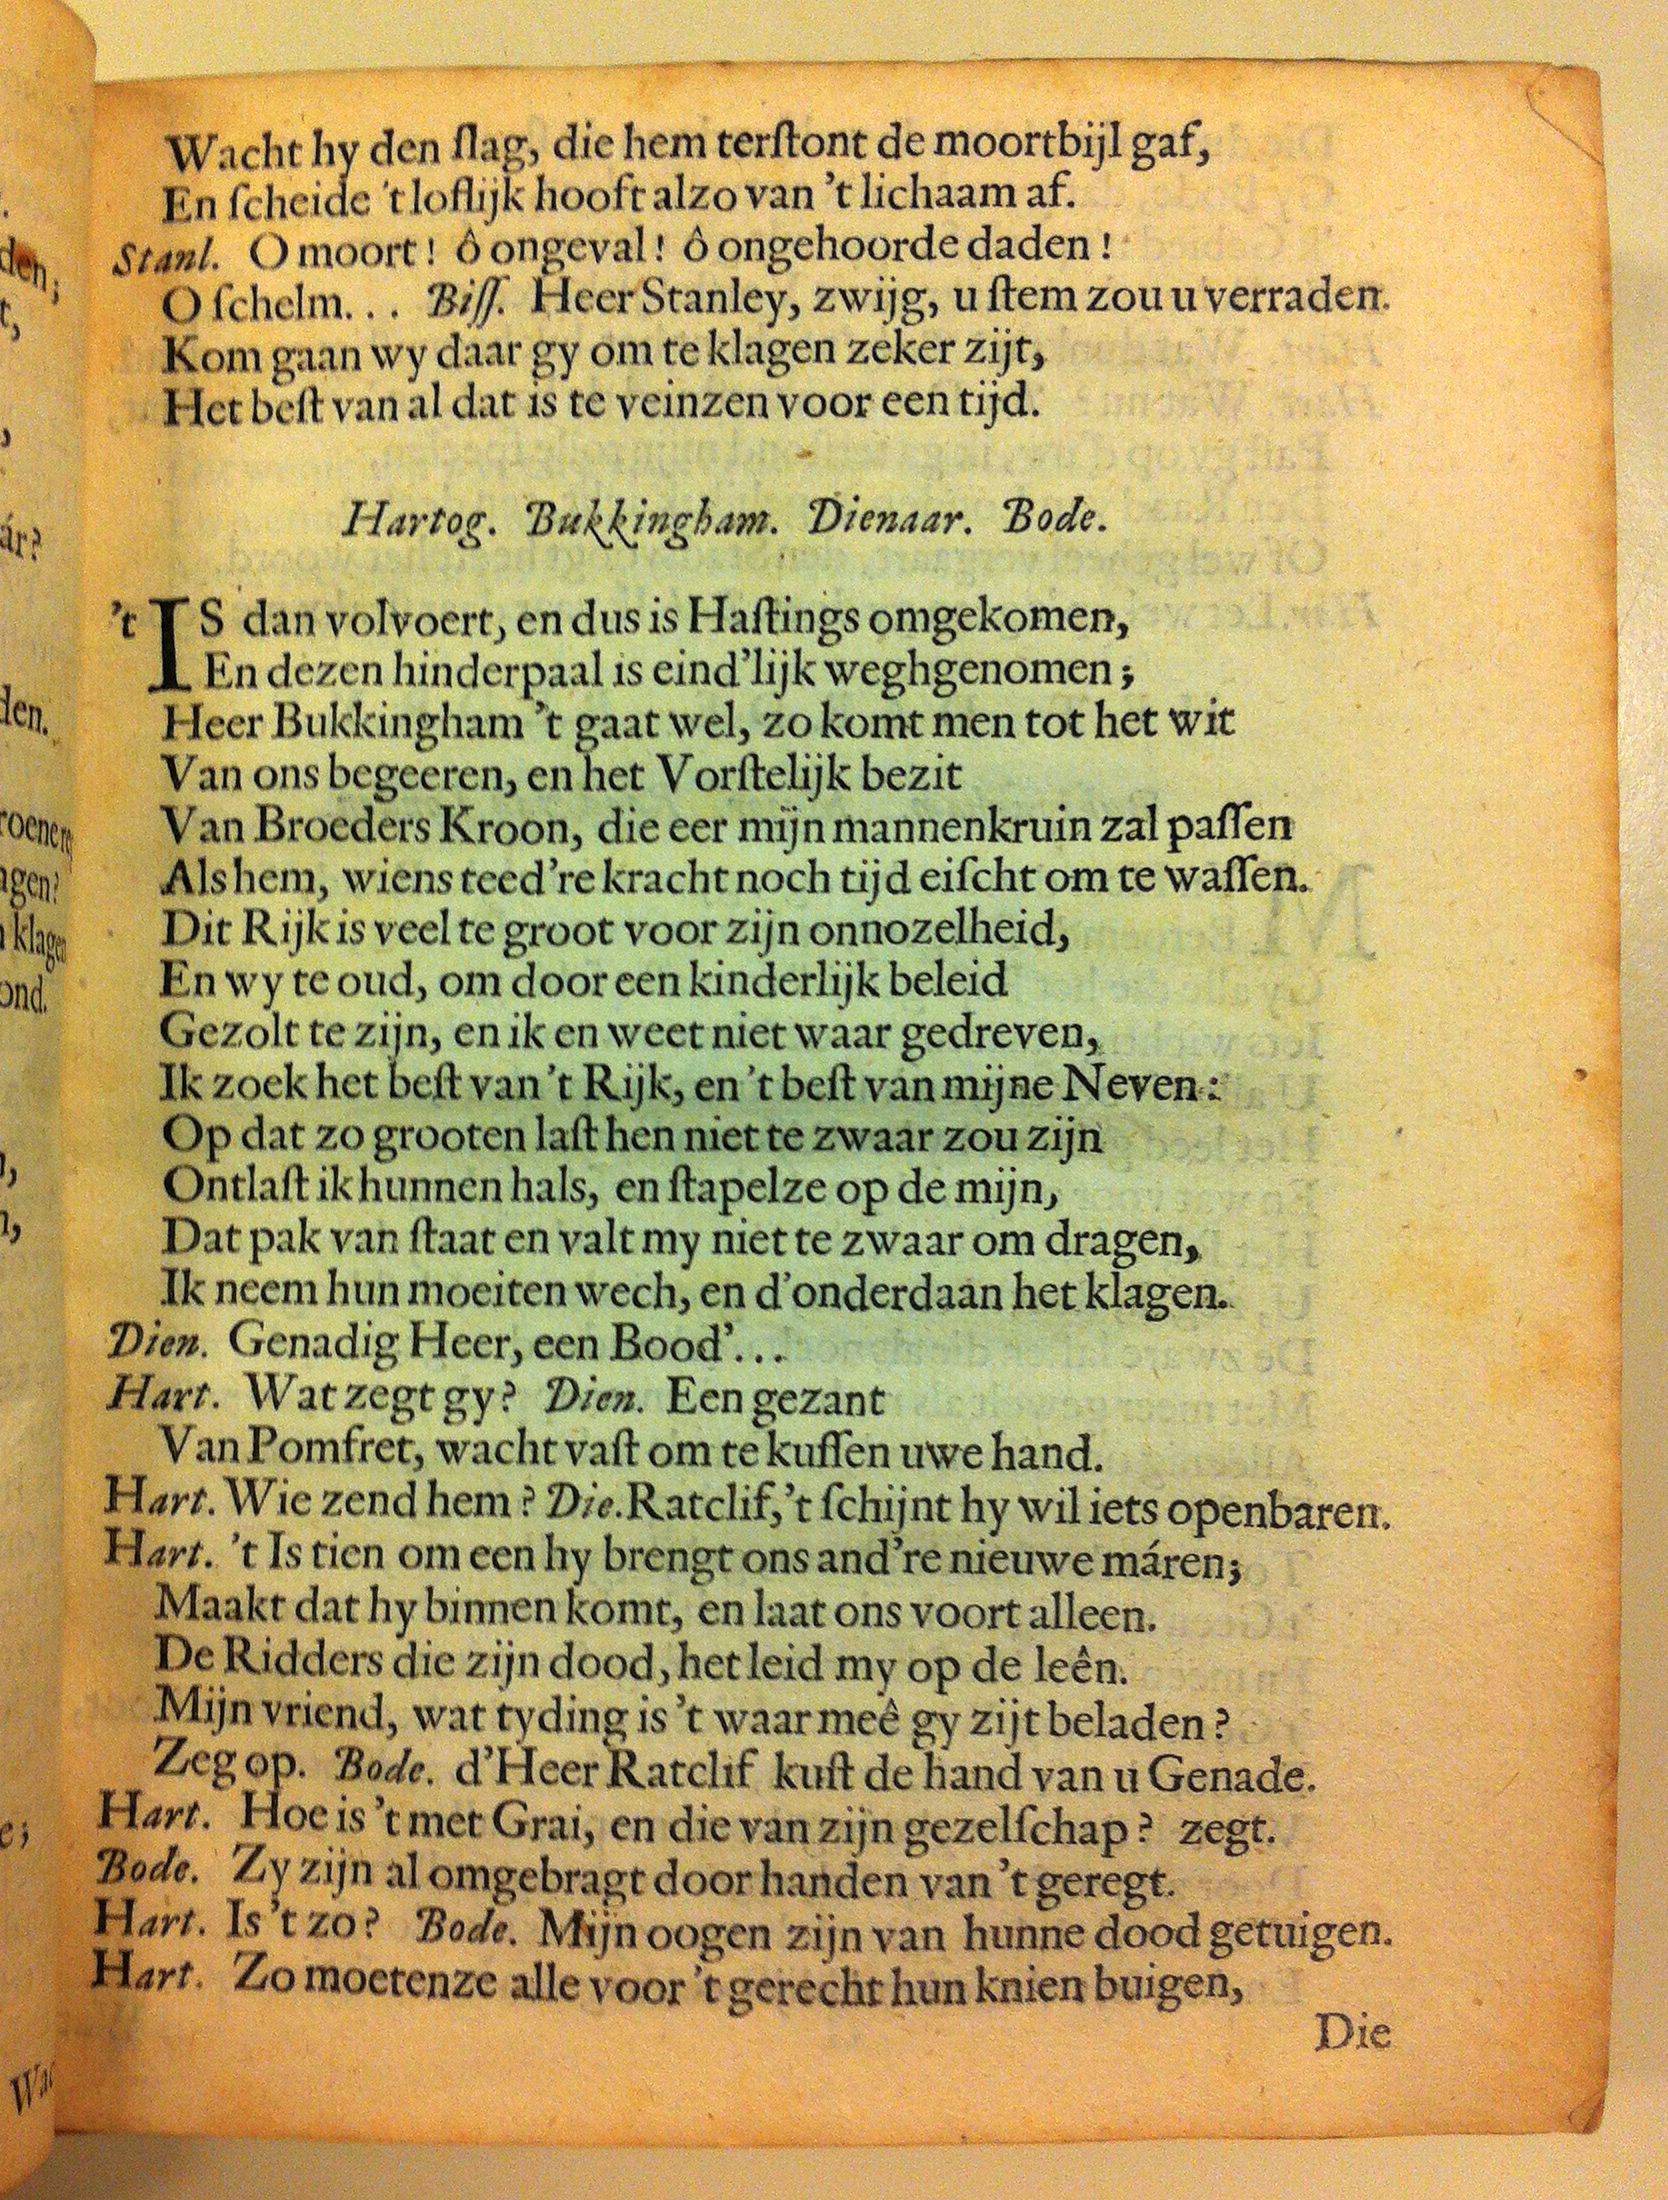 Wacht hy den ſlag, die hem terſtont de moortbijl gaf,
En ſcheide 't loflijk hooft alzo van 't lichaam af.
Stanl. O moort! ô ongeval! ô ongehoorde daden!
O ſchelm... Biſſ. Heer Stanley, zwijg, u ſtem zou u verraden.
Kom gaan wy daar gy om te klagen zeker zijt,
Het beſt van al dat is te veinzen voor een tijd.
Hartog. Bukkingham. Dienaar. Bode.
't IS dan volvoert, en dus is Haſtings omgekomen,
En dezen hinderpaal is eind'lijk weghgenomen;
Heer Bukkingham 't gaat wel, zo komt men tot het wit
Van ons begeeren, en het Vorſtelijk bezit
Van Broeders Kroon, die eer mijn mannenkruin zal paſſen
Als hem, wiens teed're kracht noch tijd eiſcht om te waſſen.
Dit Rijk is veel te groot voor zijn onnozelheid,
En wy te oud, om door een kinderlijk beleid
Gezolt te zijn, en ik en weet niet waar gedreven,
Ik zoek het beſt van 't Rijk, en 't beſt van mijne Neven:
Op dat zo grooten laſt hen niet te zwaar zou zijn
Ontlaſt ik hunnen hals, en ſtapelze op de mijn,
Dat pak van ſtaat en valt my niet te zwaar om dragen,
Ik neem hun moeiten wech, en d'onderdaan het klagen.
Dien. Genadig Heer, een Bood'...
Hart. Wat zegt gy? Dien. Een gezant
Van Pomfret, wacht vaſt om te kuſſen uwe hand.
Hart. Wie zend hem? Die. Ratclif, 't ſchijnt hy wil iets openbaren.
Hart. 't Is tien om een hy brengt ons and're nieuwe máren;
Maakt dat hy binnen komt, en laat ons voort alleen.
De Ridders die zijn dood, het leid my op de leên.
Mijn vriend, wat tyding is 't waar meê gy zijt beladen?
Zeg op. Bode. d'Heer Ratclif kuſt de hand van u Genade.
Hart. Hoe is 't met Grai, en die van zijn gezelſchap? zegt.
Bode. Zy zijn al omgebragt door handen van 't geregt.
Hart. Is 't zo? Bode. Mijn oogen zijn van hunne dood getuigen.
Hart. Zo moetenze alle voor 't gerecht hun knien buigen,
Die